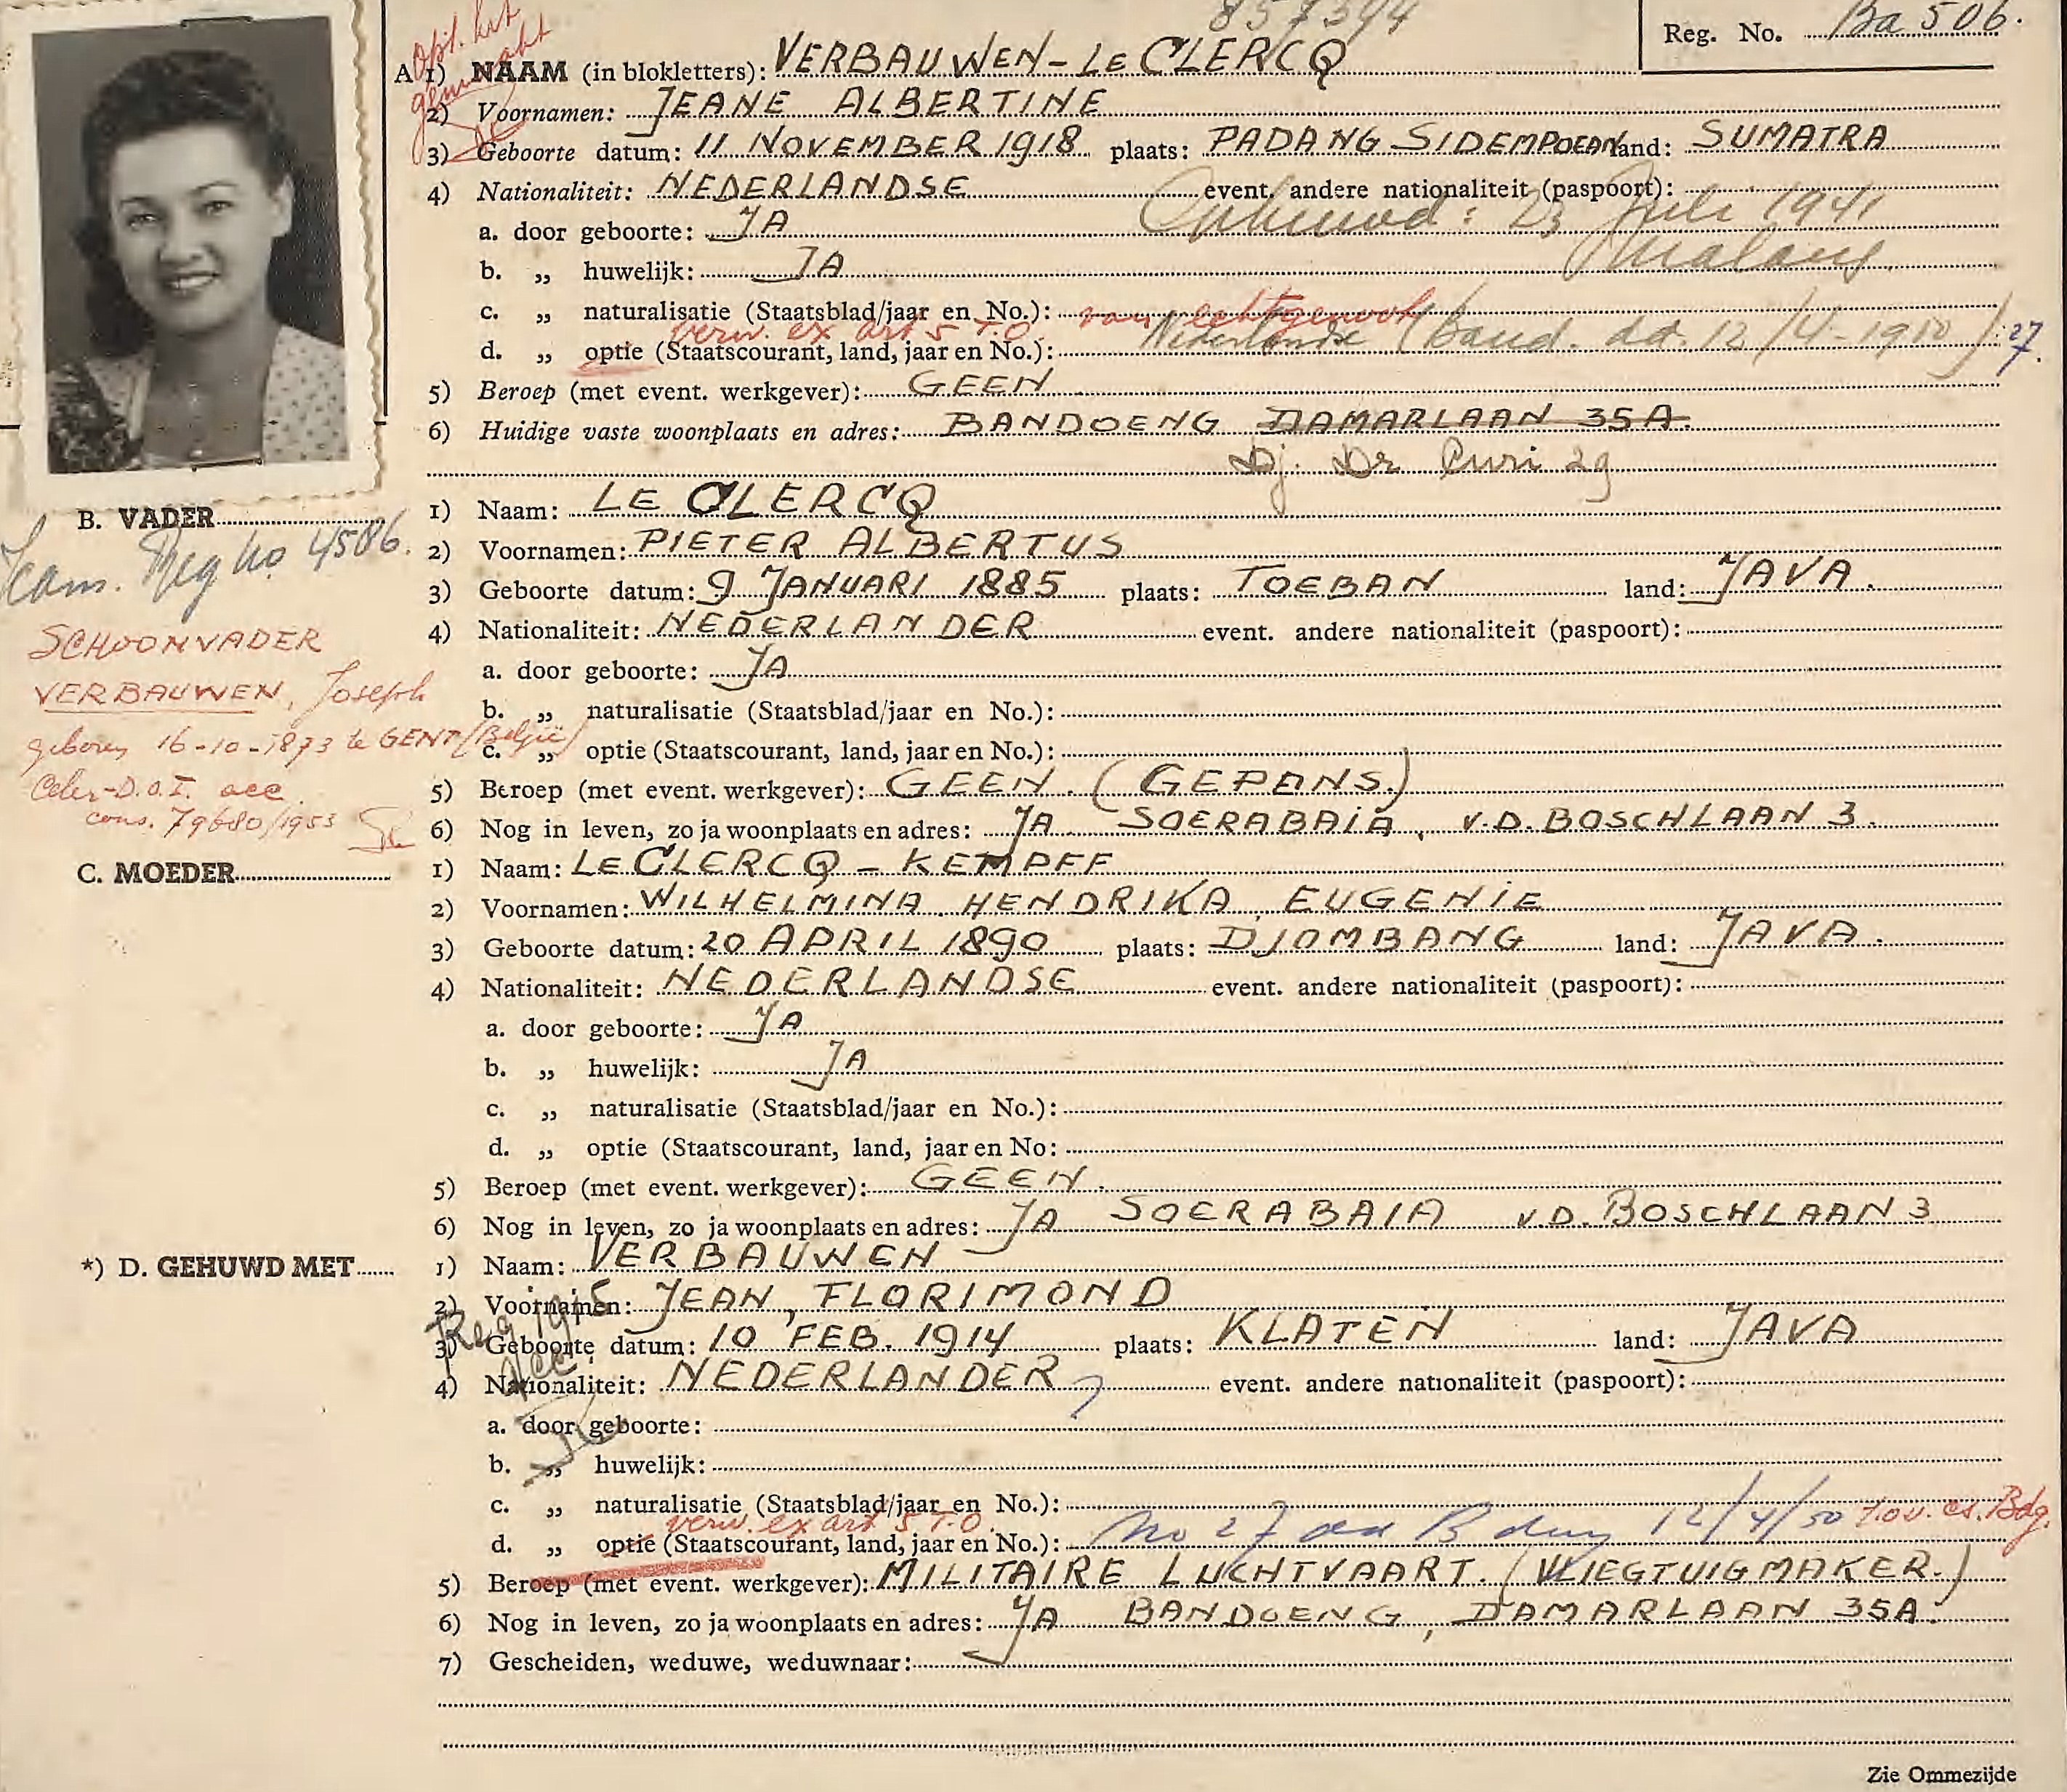 857394
Reg. No. Ba 506.
A 1) NAAM (in blokletters): VERBAUWEN - LE CLERCQ
2) Voornamen: JEANE ALBERTINE
3) Geboorte datum: 11 NOVEMBER 1918 plaats: PADANG SIDEMPOEAN land: SUMATRA
4) Nationaliteit: NEDERLANDSE event. andere nationaliteit (paspoort):
a. door geboorte: JA
Gehuwd: 23 Juli 1941
b. „ huwelijk: JA
Malang
c. „ naturalisatie (Staatsblad/jaar en No.): van echtgenoot
verw. ex art 5 T.O.
d. „ optie (Staatscourant, land, jaar en No.): Nederlandse (Band. dd. 12/4-1950): 27.
5) Beroep (met event. werkgever): GEEN
6) Huidige vaste woonplaats en adres: BANDOENG DAMARLAAN 35A.
Dj. Dr Curi 29
B. VADER
1) Naam: LE CLERCQ
Reg no 4586.
2) Voornamen: PIETER ALBERTUS
3) Geboorte datum: 9 JANUARI 1885 plaats: TOEBAN land: JAVA.
4) Nationaliteit: NEDERLANDER event. andere nationaliteit (paspoort):
a. door geboorte: JA
b. „ naturalisatie (Staatsblad/jaar en No.):
c. „ optie (Staatscourant, land, jaar en No.):
5) Beroep (met event. werkgever): GEEN. (GEPENS.)
6) Nog in leven, zo ja woonplaats en adres: JA SOERABAIA, V.D. BOSCHLAAN 3.
SCHOONVADER
VERBAUWEN, Joseph
geboren 16-10-1873 te GENT/België/
D.O.I. acc.
cons. 79680/1953
C. MOEDER
1) Naam: LE CLERCQ - KEMPFF
2) Voornamen: WILHELMINA, HENDRIKA, EUGENIE
3) Geboorte datum: 20 APRIL 1890 plaats: DJOMBANG land: JAVA.
4) Nationaliteit: NEDERLANDSE event. andere nationaliteit (paspoort):
a. door geboorte: JA
b. „ huwelijk: JA
c. „ naturalisatie (Staatsblad/jaar en No.):
d. „ optie (Staatscourant, land, jaar en No:
5) Beroep (met event. werkgever): GEEN.
6) Nog in leven, zo ja woonplaats en adres: JA SOERABAIA V.D. BOSCHLAAN 3
*) D. GEHUWD MET
1) Naam: VERBAUWEN
2) Voornamen: JEAN, FLORIMOND
Reg 1915
acc.
3) Geboorte datum: 10 FEB. 1914 plaats: KLATEN land: JAVA
4) Nationaliteit: NEDERLANDER event. andere nationaliteit (paspoort):
a. door geboorte:
b. „ huwelijk:
c. „ naturalisatie (Staatsblad/jaar en No.):
verw. ex art 5 T.O.
d. „ optie (Staatscourant, land, jaar en No.): No 27 dd Bdung 12/4/50 t.o.v. cs. Bdg.
5) Beroep (met event. werkgever): MILITAIRE LUCHTVAART. (VLIEGTUIGMAKER.)
6) Nog in leven, zo ja woonplaats en adres: JA BANDOENG, DAMARLAAN 35A.
7) Gescheiden, weduwe, weduwnaar:
Zie Ommezijde